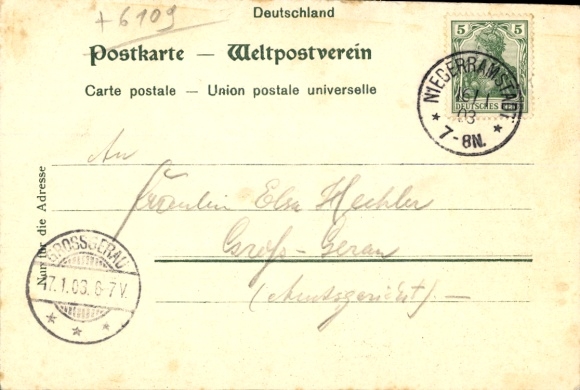 + 6109
Deutschland
Postkarte — Weltpostverein
Carte postale — Union postale universelle
5 5
DEUTSCHES REICH
NIEDERRAMSTADT
16/1
03
* 7-8N. *
An
Fräulein Elsa Hechler
Groß-Gerau
(Amtsgericht). —
Nur für die Adresse
GROSSGERAU
17.1.03. 6-7 V.
* * *